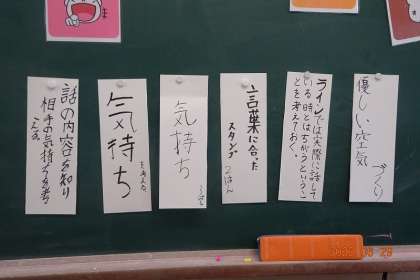 優しい空気
づくり
ラインでは実際に話して
いる時とはちがうというこ
とを考えておく。
言葉に合った
スタンプ
気持ち
気持ち
を考える
話の内容を知り
相手の気持ちを考
える。